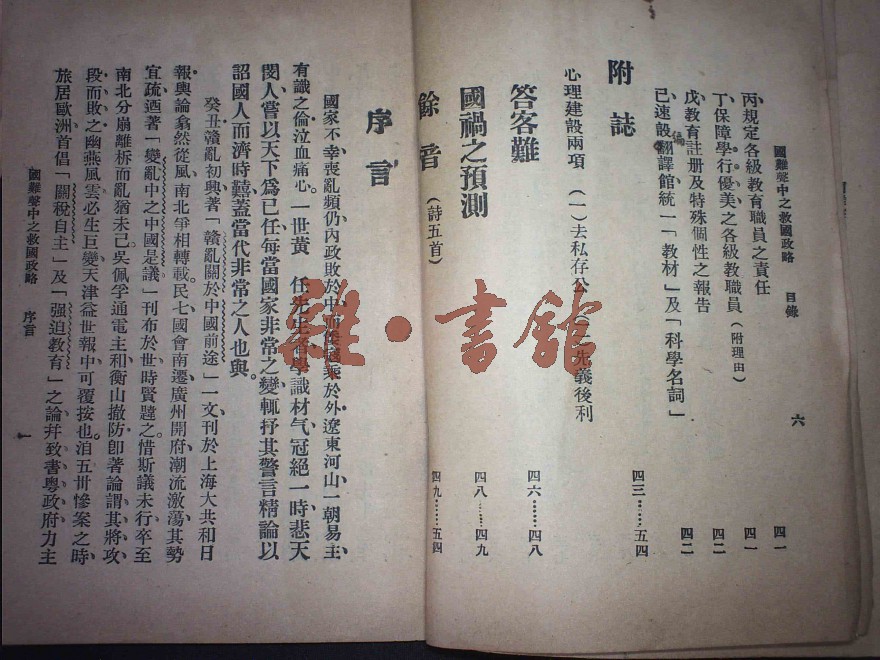 國難聲中之救國政略 目錄 六
丙規定各級教育職員之責任 四一
丁保障學行優美之各級教職員(附理由) 四一
戊教育註册及特殊個性之報告 四二
己速設編譯館統一「教材」及「科學名詞」 四二
附誌 四三……五四
心理建設兩項 (一)去私存公(二)先義後利
答客難 四六……四八
國禍之預測 四八……四九
餘音(詩五首) 四九……五四
序言
國家不幸喪亂頻仍內政敗於中而於外遼東河山一朝易主
有識之倫泣血痛心。一世黃 任先生者學識材气冠絕一時悲天
閔人嘗以天下爲已任每當國家非常之變輒抒其警言精論以
詔國人而濟時囏蓋當代非常之人也與。
癸丑贛亂初興著「贛亂關於中國前途」一文刊於上海大共和日
報輿論翕然從風南北爭相轉載民七國會南遷廣州開府潮流激蕩其勢
宜疏迺著「變亂中之中國是議」刊布於世時賢韙之惜斯議未行卒至
南北分崩離柝而亂猶未已吳佩孚通電主和衡山撤防卽著論謂其將攻
段而敗之幽燕風雲必生巨變天津益世報中可覆按也。洎五卅慘案之時
旅居歐洲首倡「關稅自主」及「强迫教育」之論幷致書粵政府力主
國難聲中之救國政略 序言 一
雜·書館